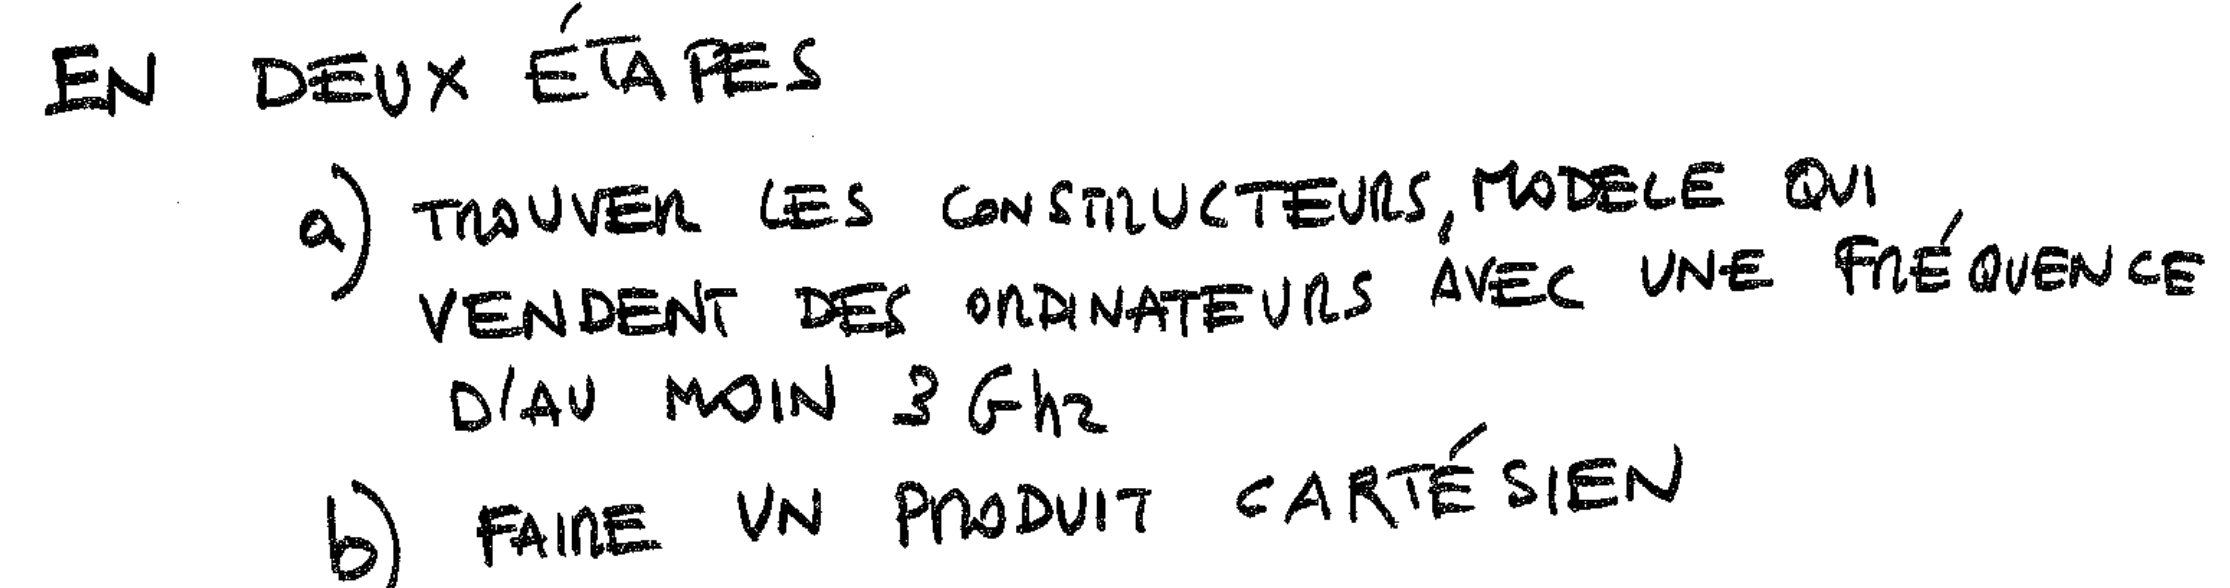 EN DEUX ÉTAPES
a) TROUVER LES CONSTRUCTEURS, MODELE QUI
VENDENT DES ORDINATEURS AVEC UNE FRÉQUENCE
D'AU MOIN 3 Ghz
b) FAIRE UN PRODUIT CARTÉSIEN